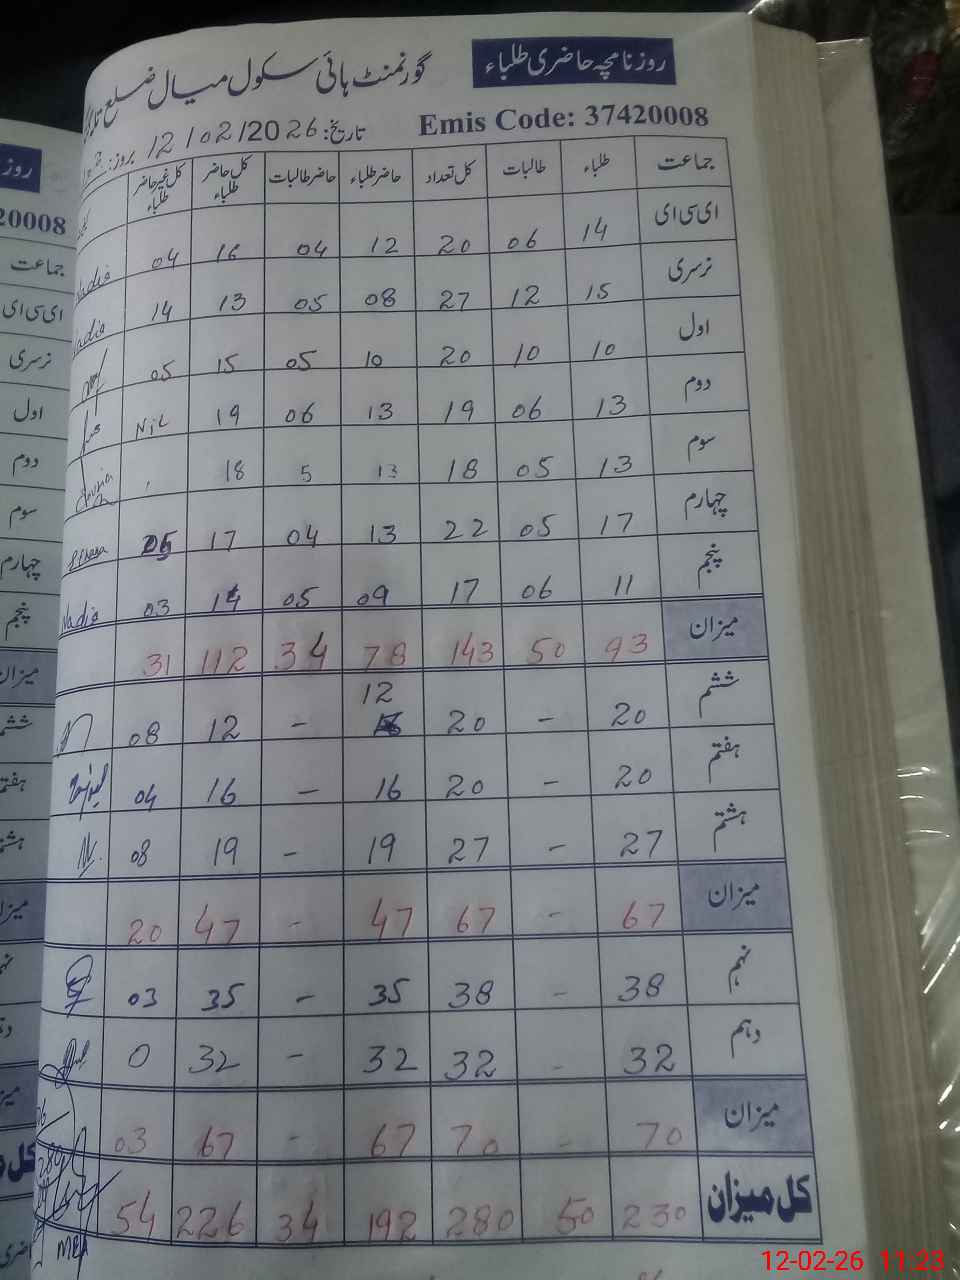 روزنامچہ حاضری طلباء
گورنمنٹ ہائی سکول میال ضلع
Emis Code: 37420008
تاریخ: 12/02/2026 بروز:
جماعت طلباء طالبات کل تعداد حاضر طلباء حاضر طالبات کل حاضر طلباء کل غیر حاضر طلباء
ای سی ای 14 06 20 12 04 16 04 Nadia
نرسری 15 12 27 08 05 13 14 Nadia
اول 10 10 20 10 05 15 05
دوم 13 06 19 13 06 19 Nil
سوم 13 05 18 13 5 18
چہارم 17 05 22 13 04 17 05
پنجم 11 06 17 09 05 14 03 Nadia
میزان 93 50 143 78 34 112 31
ششم 20 - 20 12 - 12 08
ہفتم 20 - 20 16 - 16 04
ہشتم 27 - 27 19 - 19 08
میزان 67 - 67 47 - 47 20
نہم 38 - 38 35 - 35 03
دہم 32 - 32 32 - 32 0
میزان 70 - 70 67 - 67 03
کل میزان 230 50 280 192 34 226 54
20008
جماعت
ای سی ای
نرسری
اول
دوم
سوم
چہارم
پنجم
میزان
ششم
12-02-26 11:23